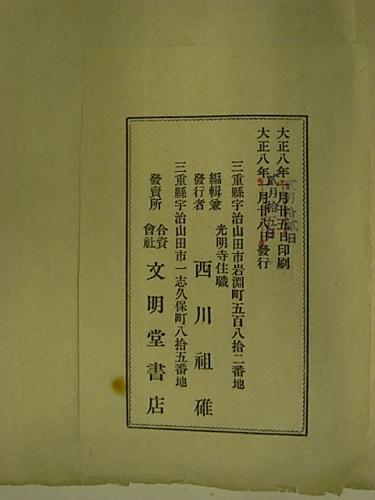 大正八年一月廿五日印刷
貳月拾貳日
大正八年一月廿八日發行
貳月拾五日
三重縣宇治山田市岩淵町五百八拾二番地
編輯兼發行者 光明寺住職 西川祖碓
三重縣宇治山田市一志久保町八拾五番地
發賣所 合資會社 文明堂書店